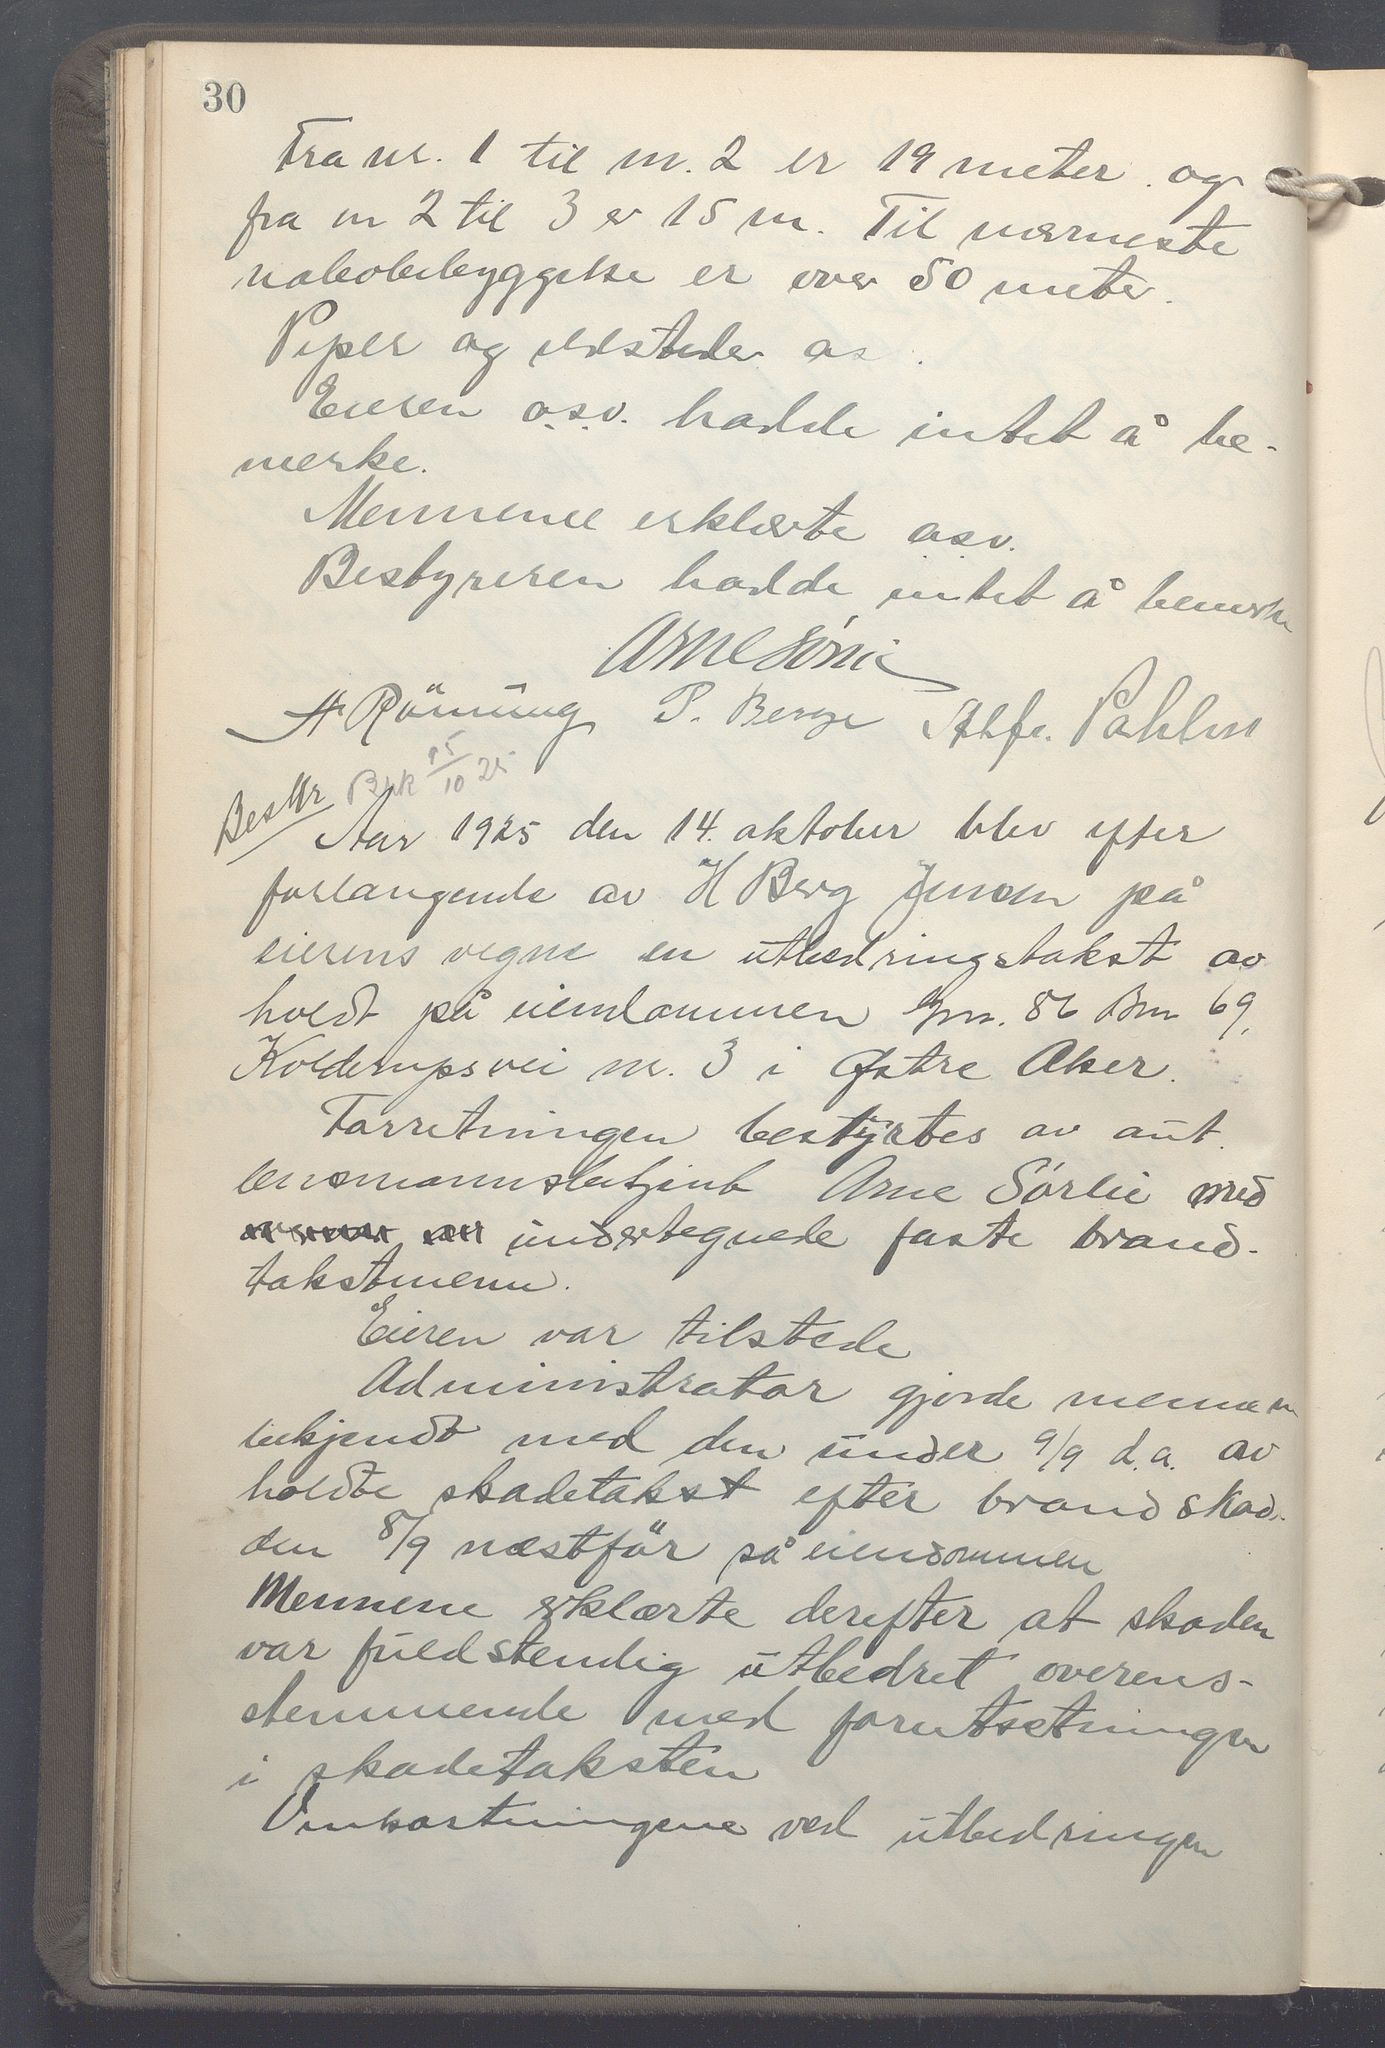 30
Fra nr. 1 til nr. 2 er 19 meter og
fra nr 2 til 3 er 15 m. Til nærmeste
nabobebyggelse er over 50 meter.
Piper og ildsteder as.
Eieren o.s.v. hadde intet å be-
merke.
Mennene erklærte osv.
Bestyreren hadde intet å bemerke
Arne Sörlie
A Rönning P. Berge Alfr. Pahlm
Beskr 15/10 25
Aar 1925 den 14. oktober blev efter
forlangende av H Berg Jensen på
eierens vegne en utbedringstakst av
holdt på eiendommen Gnr. 86 Bnr 69,
Kolderupsvei nr. 3 i Østre Aker.
Forretningen bestyrtes av aut.
lensmannsbetjent Arne Sörlie med
undertegnede faste brand-
takstmenn.
Eieren var tilstede
Administrator gjorde mennene
bekjendt med den under 9/9 d.a. av
holdte skadetakst efter brandskad.
den 8/9 næstför på eiendommen
Mennene erklærte derefter at skaden
var fuldstendig utbedret overens-
stemmende med forutsetningen
i skadetaksten
Omkostningene ved utbedringen